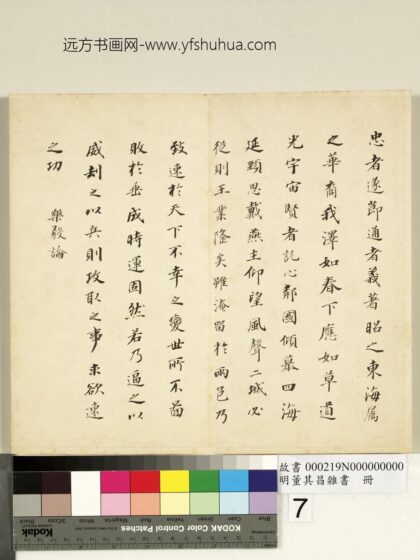 远方书画网-www.yfshuhua.com
忠者遂節通者義著昭之東海屬
之華裔我澤如春下應如草道
光宇宙賢者託心鄰國傾慕四海
延頸思戴燕主仰望風聲二城必
從則王業隆矣雖淹留於兩邑乃
致速於天下不幸之變世所不啚
敗於垂成時運固然若乃逼之以
威劫之以兵則攻取之事求欲速
之功 樂毅論
故書 000219N000000000
明董其昌雜書 冊
7
KODAK Color Control Patches
Blue
Cyan
Green
Yellow
Red
Magenta
White
3/Color
Black